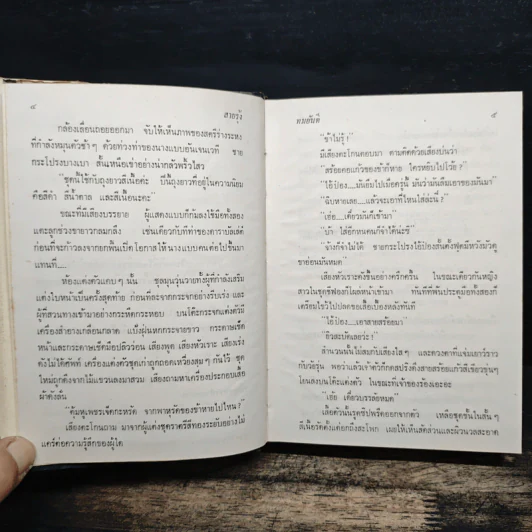 ๔
สายรุ้ง
กล้องเลื่อนถอยออกมา จับให้เห็นภาพของสตรีร่างระหง
ที่กำลังหมุนตัวช้า ๆ ด้วยท่วงท่าของนางแบบอันเจนเวที ชาย
กระโปรงบางเบา สั้นเหนือเข่าอย่างน่ากลัวพริ้วไสว
“ชุดนี้ใช้กับถุงยาวสีเนื้อค่ะ ปีนี้ถุงยาวที่อยู่ในความนิยม
คือสีดำ สีน้ำตาล และสีเนื้อนะคะ”
ขณะที่มีเสียงบรรยาย ผู้แสดงแบบก็
แตะลูกช่วงขายาวกลมกลึง เช่นเดียวกับที่ท่าของคาราบัลเล่ต์
ก่อนที่จะก้าวลงจากยกพื้นเปิดโอกาสให้นางแบบคนต่อไปขึ้นมา
แทนที่....
ห้องแต่งตัวแคบ ๆ นั้น ชุลมุนวุ่นวายทั้งผู้ที่กำลังเสริม
แต่งใบหน้าเป็นครั้งสุดท้าย ก่อนที่จะจากกระจกอย่างรีบเร่ง และ
ผู้ที่สวนทางเข้ามาอย่างกระหืดกระหอบ บนโต๊ะกระจกแต่งตัวมี
เครื่องสำอางเกลื่อนกลาด แป้งฝุ่นหกกระจายขาว กระดาษเช็ด
หน้าและกระดาษเช็ดมือปลิวร่อน เสียงพูด เสียงหัวเราะ เสียงเร่ง
ดังไม่ได้ศัพท์ เครื่องแต่งตัวชุดเก่าถูกถอดเหวี่ยงสุม ๆ กันไว้ ชุด
ใหม่ถูกดึงจากไม้แขวนลงมาสวม เสียงถามหาเครื่องประกอบเสื้อ
ผ้าดังลั่น
“ตุ้มหูเพชรเจ็ดกะหรัด จากพาหุรัดของข้าหายไปไหน ?”
เสียงตะโกนถาม มาจากผู้แต่งชุดราตรีสีทองระยับอย่างไม่
แคร์ต่อความรู้สึกของผู้ใด
ทมยันตี
๕
“ข้าไม่รู้ !”
มีเสียงตะโกนตอบมา ตามติดด้วยเสียงบ่นว่า
“สร้อยคอแก้วของข้าก็หาย ใครหยิบไปโว้ย ?”
“ไอ้ป่อง....มันยืมไปเมื่อครู่นี้ มันว่ามันลืมเอาของมันมา”
“ฉิบหายเลย....แล้วจะเอาที่ไหนใส่ล่ะนี่ !”
“เอ๋ย....เดี๋ยวมันก็เข้ามา”
“บ้า ไส้อกที่หนดนก็จำได้น่ะซี”
“ช่างก็จำไม่ได้ ชายกระโปรงไอ้ป่องสั้นตั้งฟุตมีหวังมัวดู
ขาอ่อนมันหมด”
เสียงหัวเราะดังขึ้นอย่างครึกครื้น ในขณะเดียวกันหญิง
สาวในชุดชีฟองก็โผล่หน้าเข้ามา ทันทีที่พ้นประตูมือทั้งสองก็
เตรียมไขว้ไปปลดขอเสื้อเบื้องหลังทันที
“ไอ้ป่อง....เอาสายสร้อยมา”
“ยิวสะบัดเลอวะ !”
สำนวนนั้นไม่สมกับเสียงใส ๆ และดวงตาที่แจ่มเยาว์ราว
กับวัยรุ่น พอว่าแล้วเจ้าตัวก็กดสปริงดึงสายสร้อยแก้วสีเขียวขุ่นๆ
โยนลงบนโต๊ะแต่งตัว ในขณะที่เจ้าของร้องเอะอะ
“เฮ้ย เดี๋ยวบรรลัยหมด”
เสื้อตัวนั้นรูดซิปพรืดออกจากตัว เหลือชุดชั้นในสั้น ๆ
สีเนื้อรัดตั้งแต่อกถึงสะโพก เผยให้เห็นสัดส่วนและผิวนวลสะอาด